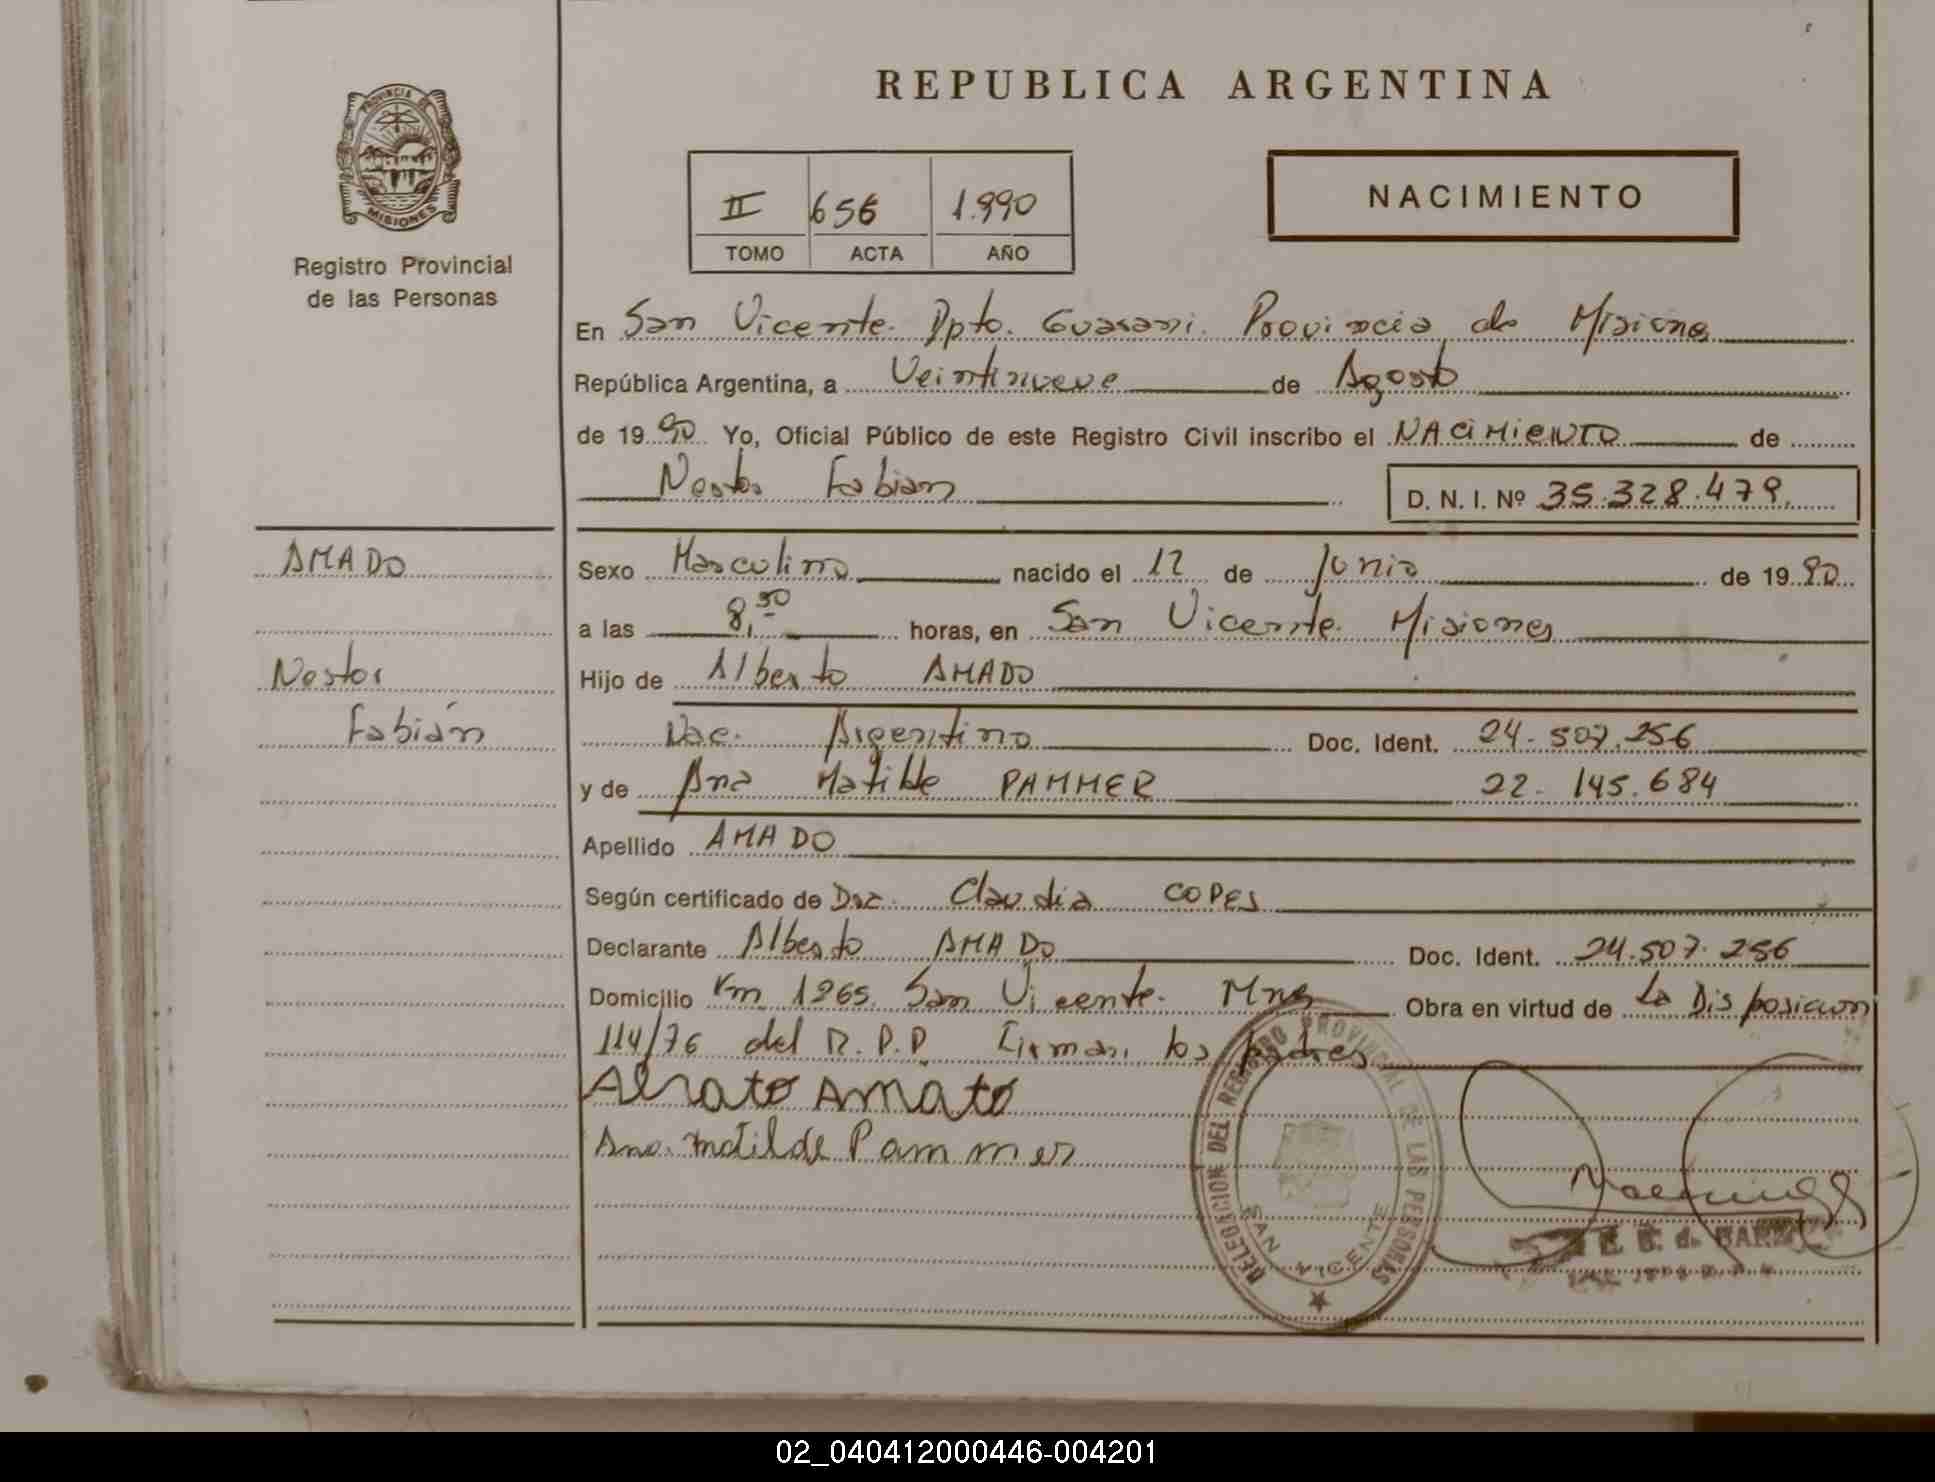 REPUBLICA ARGENTINA
PROVINCIA DE
MISIONES
Registro Provincial
de las Personas
II 656 1.990
TOMO ACTA AÑO
NACIMIENTO
En San Vicente. Dpto. Guarani. Provincia de Misiones
República Argentina, a Veintinueve de Agosto
de 1990 Yo, Oficial Público de este Registro Civil inscribo el NACIMIENTO de
Nestor Fabian D. N. I. Nº 35.328.479.
AMADO
Nestor
Fabián
Sexo Masculino nacido el 12 de Junio de 1990
a las 8,30 horas, en San Vicente. Misiones
Hijo de Alberto AMADO
Nac. Argentino Doc. Ident. 24.507.256
y de Ana Matilde PAMMER 22.145.684
Apellido AMADO
Según certificado de Dra. Claudia COPES
Declarante Alberto AMADO Doc. Ident. 24.507.256
Domicilio Km 1265. San Vicente. Mnes Obra en virtud de La Disposicion
114/76 del R.P.P. Firman los padres
Amato
Ana. Matilde Pammer
DELEGACION DEL REGISTRO PROVINCIAL DE LAS PERSONAS
SAN VICENTE
02_040412000446-004201